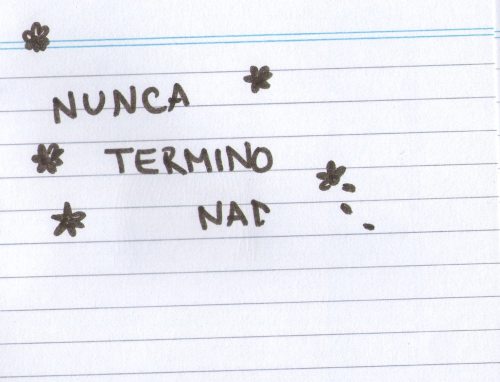 NUNCA
TERMINO
NAD